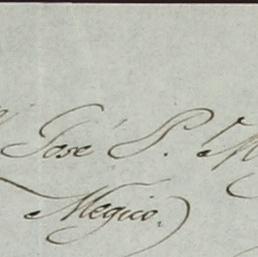 José P.
Megico.